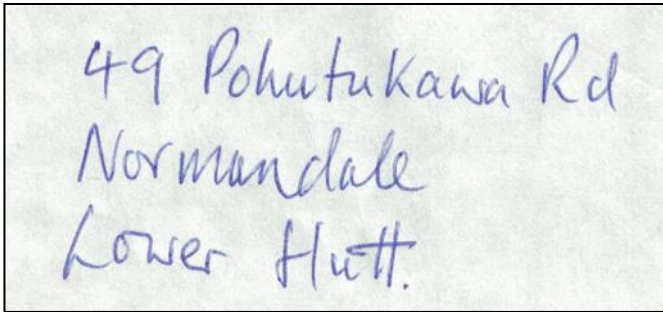 49 Pohutukawa Rd
Normandale
Lower Hutt.